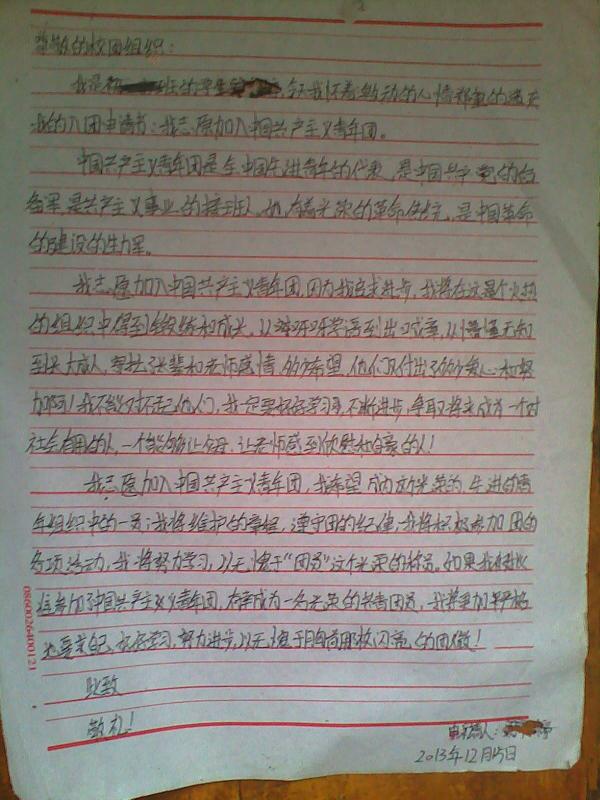 尊敬的校团组织：
我是初 班的学生 ，今天我怀着激动的心情郑重的递交
我的入团申请书：我志愿加入中国共产主义青年团。
中国共产主义青年团是全中国先进青年的代表，是中国共产党的后
备军，是共产主义事业的接班人，也有着光荣的革命传统，是中国革命
的建设的生力军。
我志愿加入中国共产主义青年团，因为我追求进步，我将在这是个火热
的组织中得到锻练和成长，从牙牙学语到出口成章，从懵懂无知
到长大成人，寄托长辈和老师感情的希望，他们又付出了 和努
力啊！我不能对不起他们，我一定要好好学习，不断进步，争取将来成为一个对
社会有用的人，一个能够让父母、让老师感到欣慰和自豪的人！
我志愿加入中国共产主义青年团，我希望成为 光荣的、先进的青
年组织中的一员；我将维护的章程，遵守团的纪律，我将积极参加团的
各项活动，我将努力学习，以无愧于“团员”这个光荣的称号，如果我
参加了中国共产主义义青年团，有幸成为一名光荣的共青团员，我将更加严格
要求自己，好好学习，努力进步，以无愧于胸前那枚闪亮的团徽！
此致
敬礼！
申请人：
2013年12月 日
0860026400121